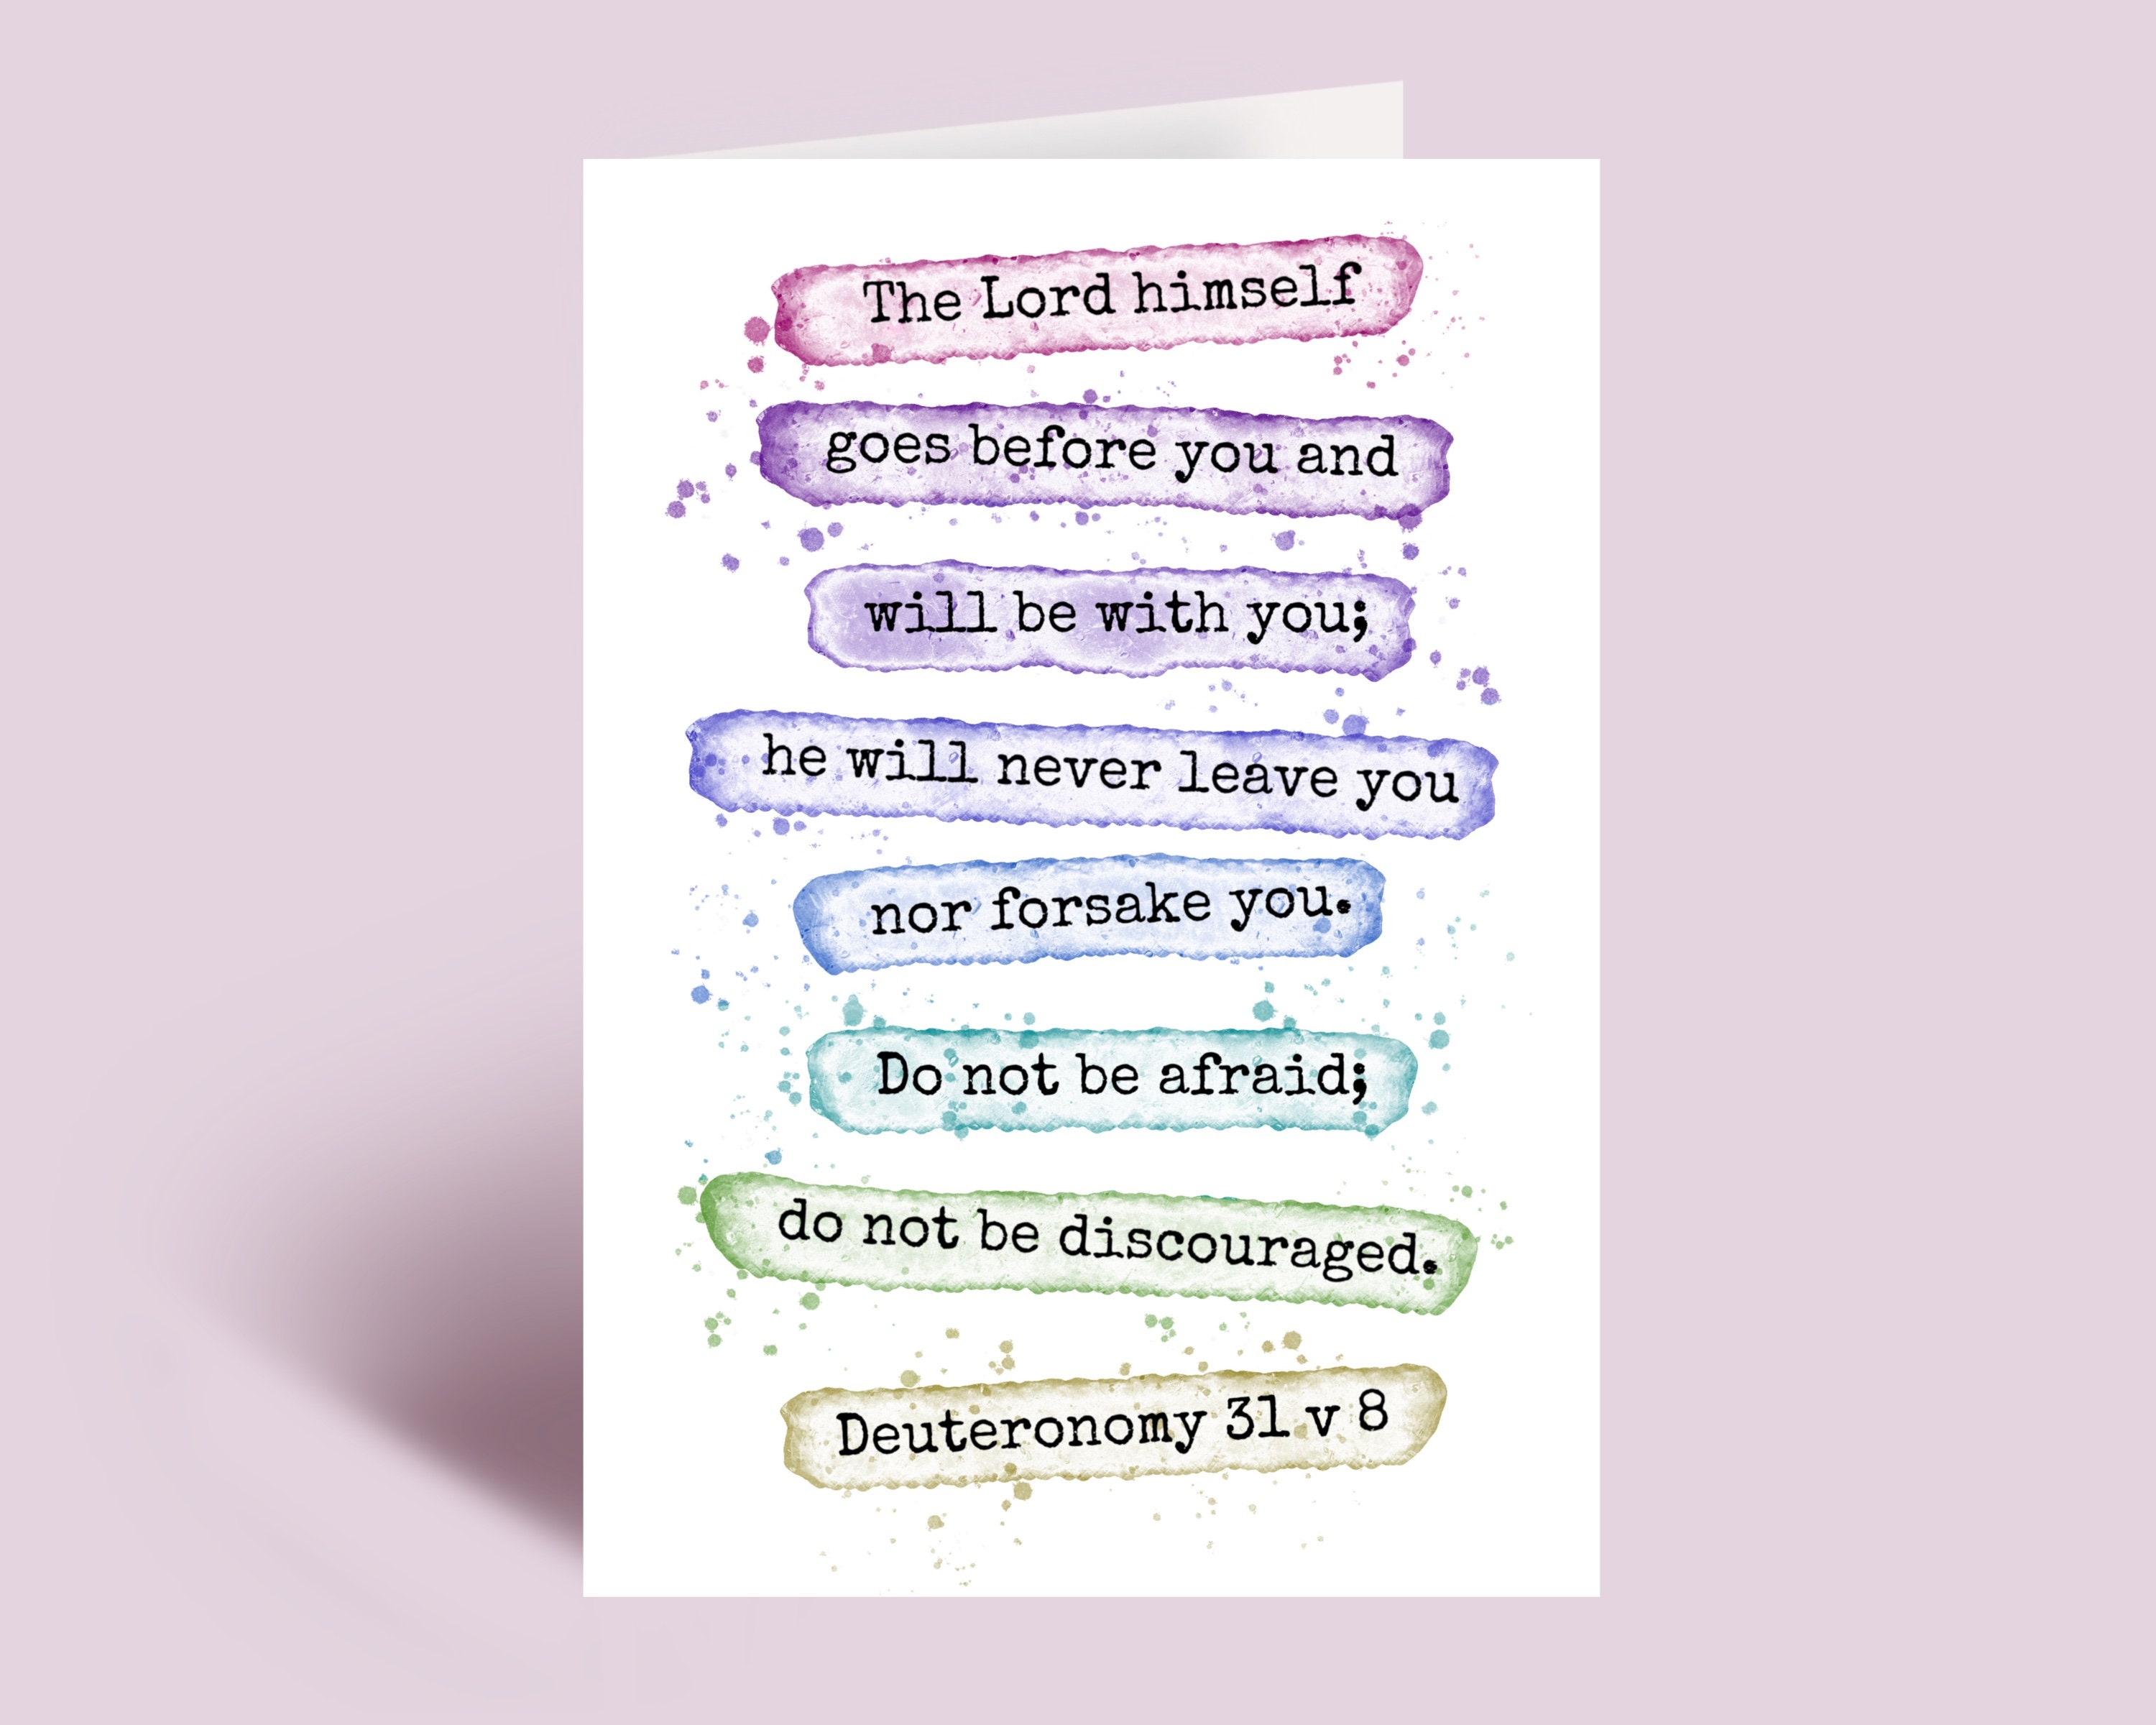 The Lord himself
goes before you and
will be with you;
he will never leave you
nor forsake you.
Do not be afraid;
do not be discouraged.
Deuteronomy 31 v 8